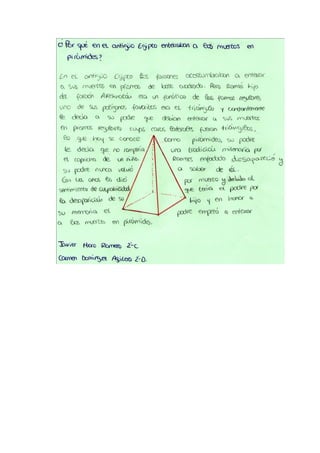 c) Por qué en el antiguo Egipto enterraban a los muertos en
pirámides?
En el antiguo Egipto los faraones acostumbraban a enterrar
a sus muertos en prismas de base cuadrada. Pero Ramses hijo
del faraón era un fanático de las formas regulares,
uno de sus polígonos favoritos era el triángulo y constantemente
le decía a su padre que debían enterrar a sus muertos
en prismas regulares cuyas caras laterales fueran triángulos,
lo que hoy se conoce como pirámides, su padre
le decía que no rompería una tradición milenaria por
el capricho de un niño. Ramses enfadado desapareció y
su padre nunca volvió a saber de él.
Con los años lo dio por muerto y debido al
sentimiento de culpabilidad que tenía el padre por
la desaparición de su hijo y en honor a
su memoria el padre empezó a enterrar
a los muertos en pirámides.
Javier Haro Ramos 2º-C
Carmen Domínguez 2º-D.